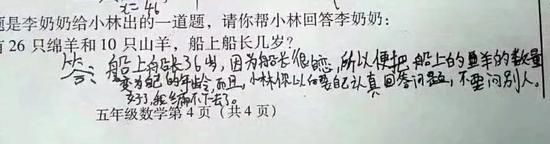 x = 46
题是李奶奶给小林出的一道题，请你帮小林回答李奶奶：
有 26 只绵羊和 10 只山羊，船上船长几岁？
答：船上船长36岁，因为船长很恋，所以便把船上的的羊的数量
变为自己的年龄，而且，小林你以后要自己认真回答问题，不要问别人。
好了，我编不下去了。
五年级数学第 4 页（共 4 页）